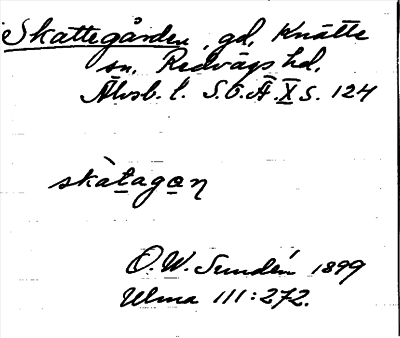 Skattegården, gd, Knätte
sn, Redvägs hd,
Älvsb. l. S.O.Ä. X s. 124
skàtagan
O. W. Sundén 1899
Ulma 111:272.